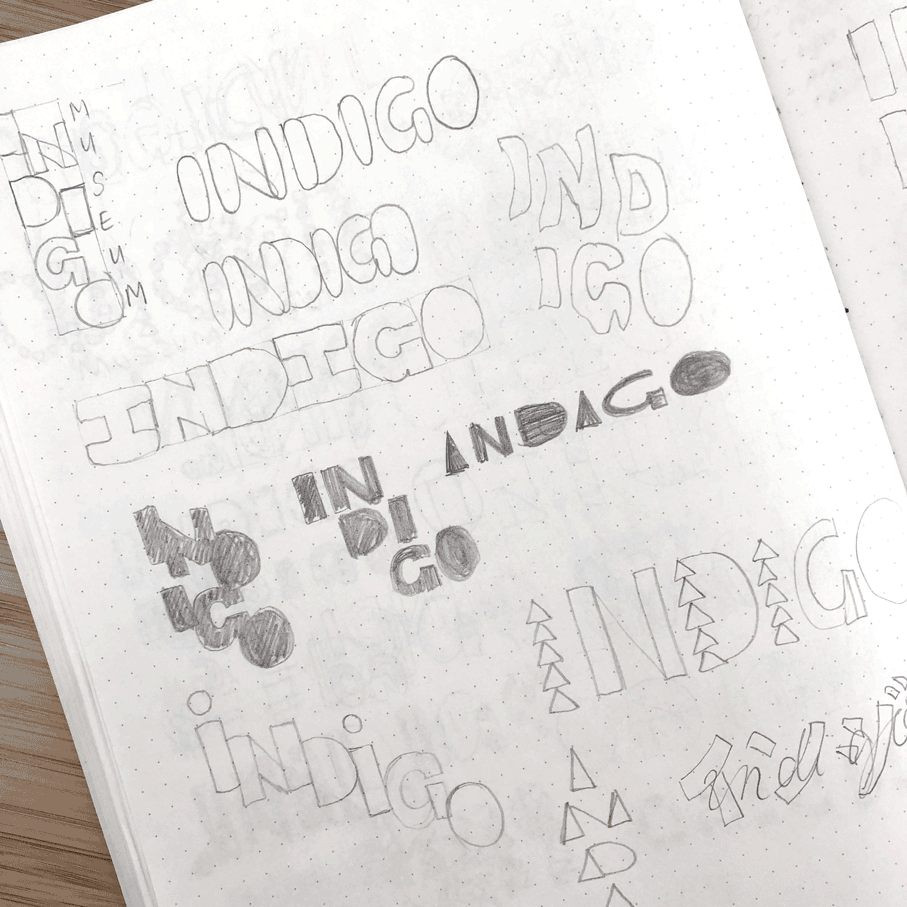 IN
DI
G
O
MUSEUM
INDIGO
IND
IGO
INDIGO
INDIGO
INDIGO
IN
DI
GO
IND
IGO
INDIGO
iNDiGO
indigo